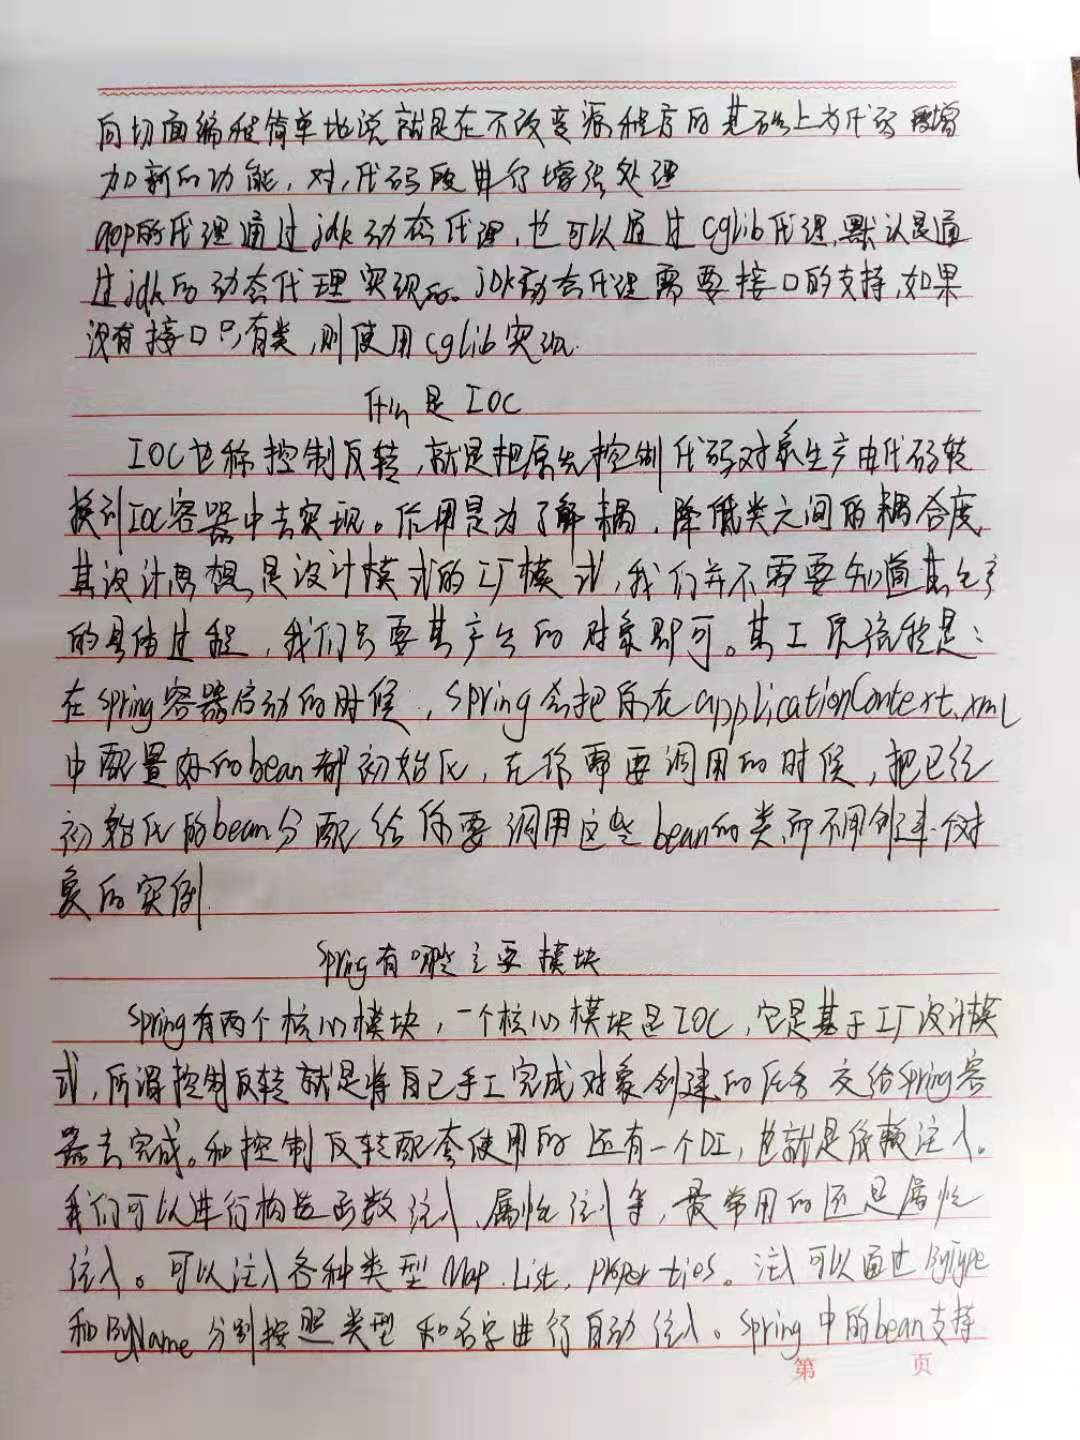 向切面编程简单地说就是在不改变源程序的基础上为代码增
加新的功能，对代码段进行增强处理
aop的代理通过jdk动态代理，也可以通过cglib代理，默认是通
过jdk的动态代理实现的。JDK动态代理需要接口的支持，如果
没有接口只有类，则使用cglib实现.
什么是IOC
IOC也称控制反转，就是把原先控制代码对象生产由代码转
换到IOC容器中去实现。作用是为了解耦，降低类之间的耦合度，
其设计思想是设计模式的工厂模式，我们并不需要知道其生产
的具体过程，我们只要其产生的对象即可。其工厂流程是：
在Spring容器启动的时候，Spring会把所在applicationContext.xml
中配置好的bean都初始化，在你需要调用的时候，把已经
初始化的bean分配给你要调用这些bean的类而不用创建个对
象的实例.
Spring有哪些主要模块
Spring有两个核心模块，一个核心模块是IOC，它是基于工厂设计模
式，所谓控制反转就是将自己手工完成对象创建的任务交给Spring容
器去完成。和控制反转配套使用的还有一个DI，也就是依赖注入。
我们可以进行构造函数注入、属性注入等，最常用的还是属性
注入。可以注入各种类型Map.List.Properties。注入可以通过ByType
和ByName分别按照类型和名字进行自动注入。Spring中的bean支持
第 页